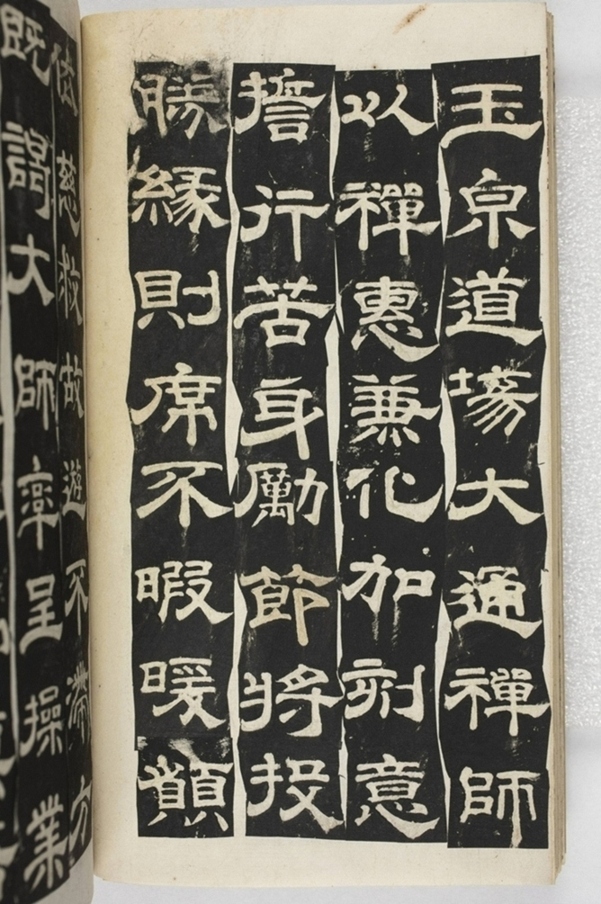 玉泉道場大通禪師
以禪惠兼化加刻意
誓行苦身勵節將投
勝緣則席不暇暖願
依慈救故遊不滯方
既謁大師率呈操業